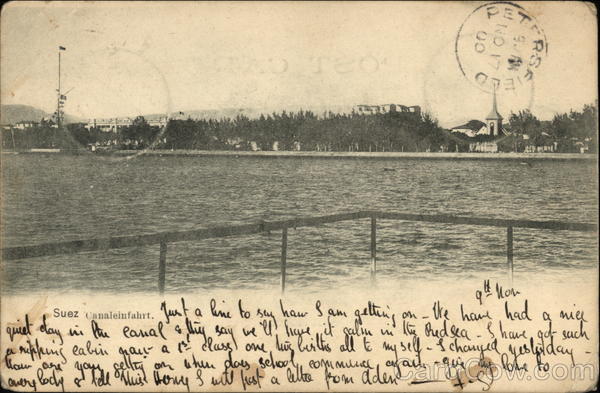 PETERSFIELD
NO 17
00
POST CARD
9th Nov
Suez Canaleinfahrt.
Just a line to say how I am getting on - We have had a nice
quiet day in the canal & they say we'll have it calm in the Red Sea - I have got such
a ripping cabin now a 1st class one my births all to myself - I changed yesterday -
how are you getting on when does school commence again - give my love to
everybody & tell Miss I will post a letter from Aden
CardCow.com